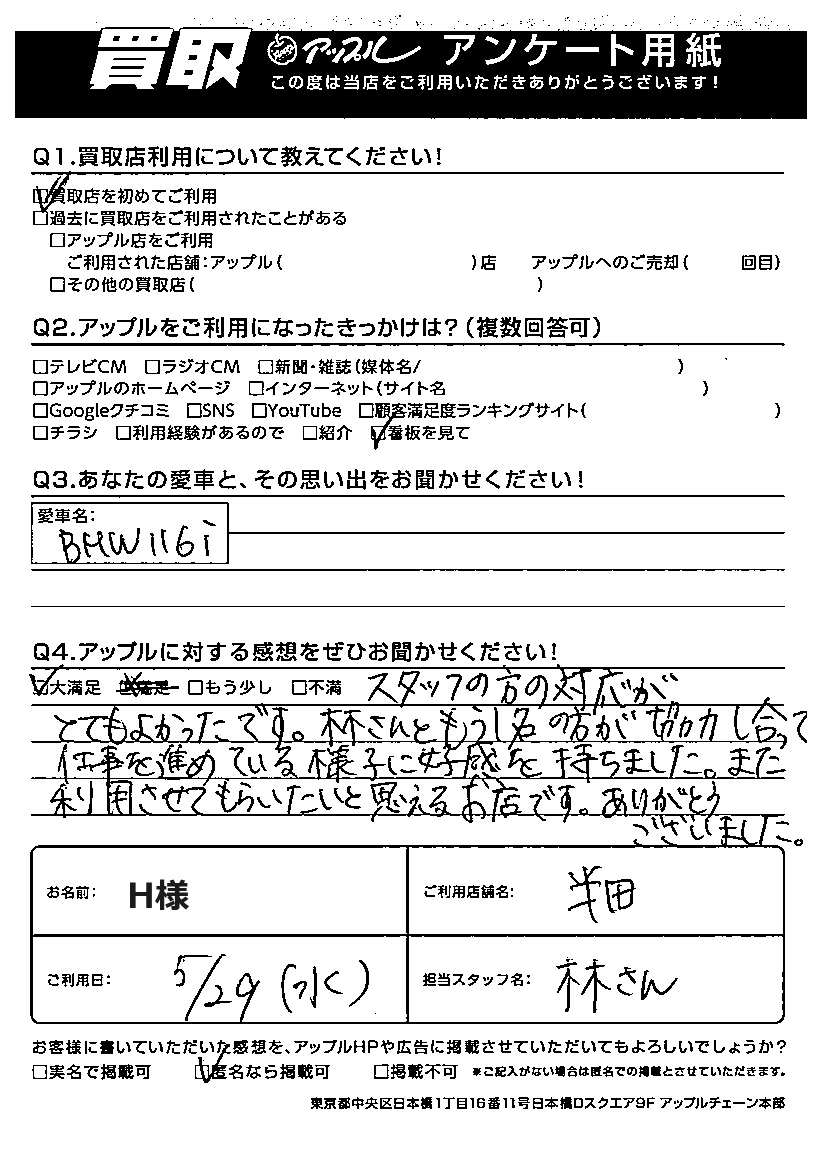 買取 アップル アンケート用紙
この度は当店をご利用いただきありがとうございます!
Q1.買取店利用について教えてください!
☑買取店を初めてご利用
□過去に買取店をご利用されたことがある
□アップル店をご利用
ご利用された店舗:アップル( )店 アップルへのご売却( 回目)
□その他の買取店( )
Q2.アップルをご利用になったきっかけは?(複数回答可)
□テレビCM □ラジオCM □新聞・雑誌(媒体名/ )
□アップルのホームページ □インターネット(サイト名 )
□Googleクチコミ □SNS □YouTube □顧客満足度ランキングサイト( )
□チラシ □利用経験があるので □紹介 ☑看板を見て
Q3.あなたの愛車と、その思い出をお聞かせください!
愛車名:
BMW116i
Q4.アップルに対する感想をぜひお聞かせください!
☑大満足 □満足 □もう少し □不満 スタッフの方の対応が
とてもよかったです。林さんともう1名の方が協力し合って
仕事を進めている様子に好感を持ちました。また
利用させてもらいたいと思えるお店です。ありがとう
ございました。
お名前: H様 ご利用店舗名: 半田
ご利用日: 5/29(水) 担当スタッフ名: 林さん
お客様に書いていただいた感想を、アップルHPや広告に掲載させていただいてもよろしいでしょうか?
□実名で掲載可 ☑匿名なら掲載可 □掲載不可 ※ご記入がない場合は匿名での掲載とさせていただきます。
東京都中央区日本橋1丁目16番11号日本橋ロスクエア9F アップルチェーン本部